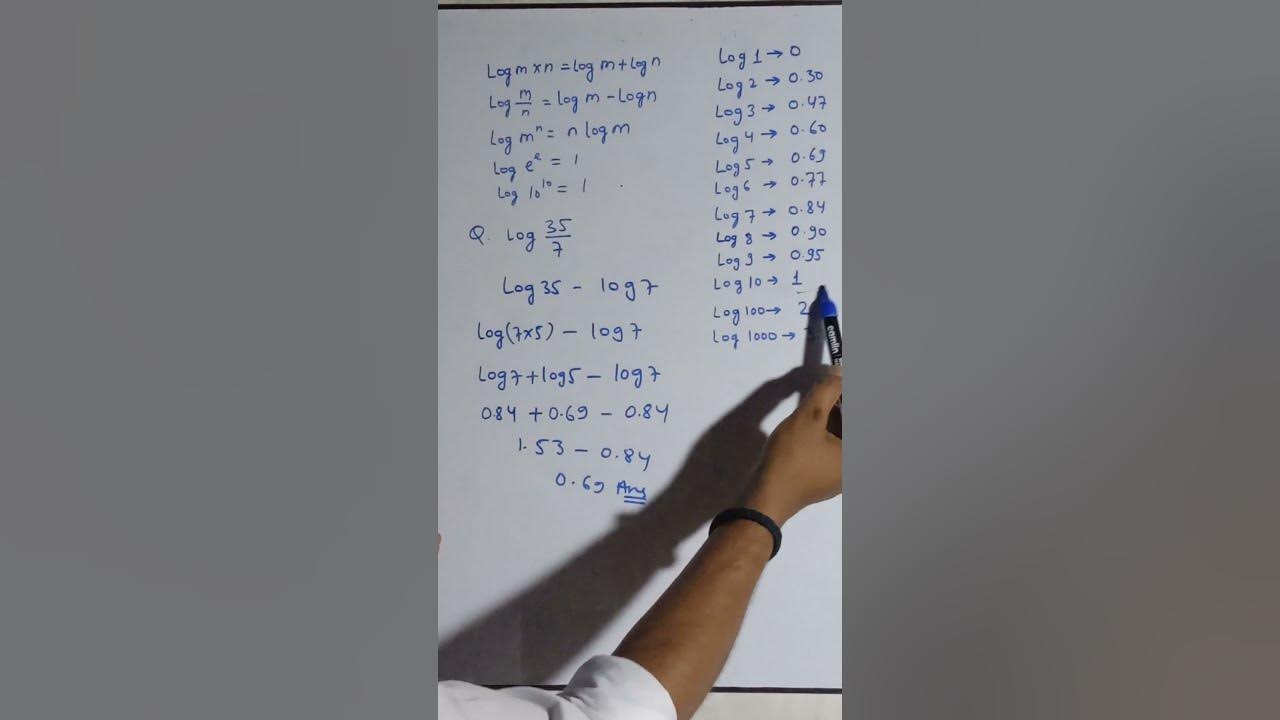 Log m × n = log m + log n
Log m/n = log m - log n
Log mⁿ = n log m
Log eᵉ = 1
Log 10¹⁰ = 1
Q. Log 35/7
Log 35 - log 7
Log(7×5) - log 7
Log 7 + log 5 - log 7
0.84 + 0.69 - 0.84
1.53 - 0.84
0.69 Ans
Log 1 → 0
Log 2 → 0.30
Log 3 → 0.47
Log 4 → 0.60
Log 5 → 0.69
Log 6 → 0.77
Log 7 → 0.84
Log 8 → 0.90
Log 9 → 0.95
Log 10 → 1
Log 100 → 2
Log 1000 → 3
camlin